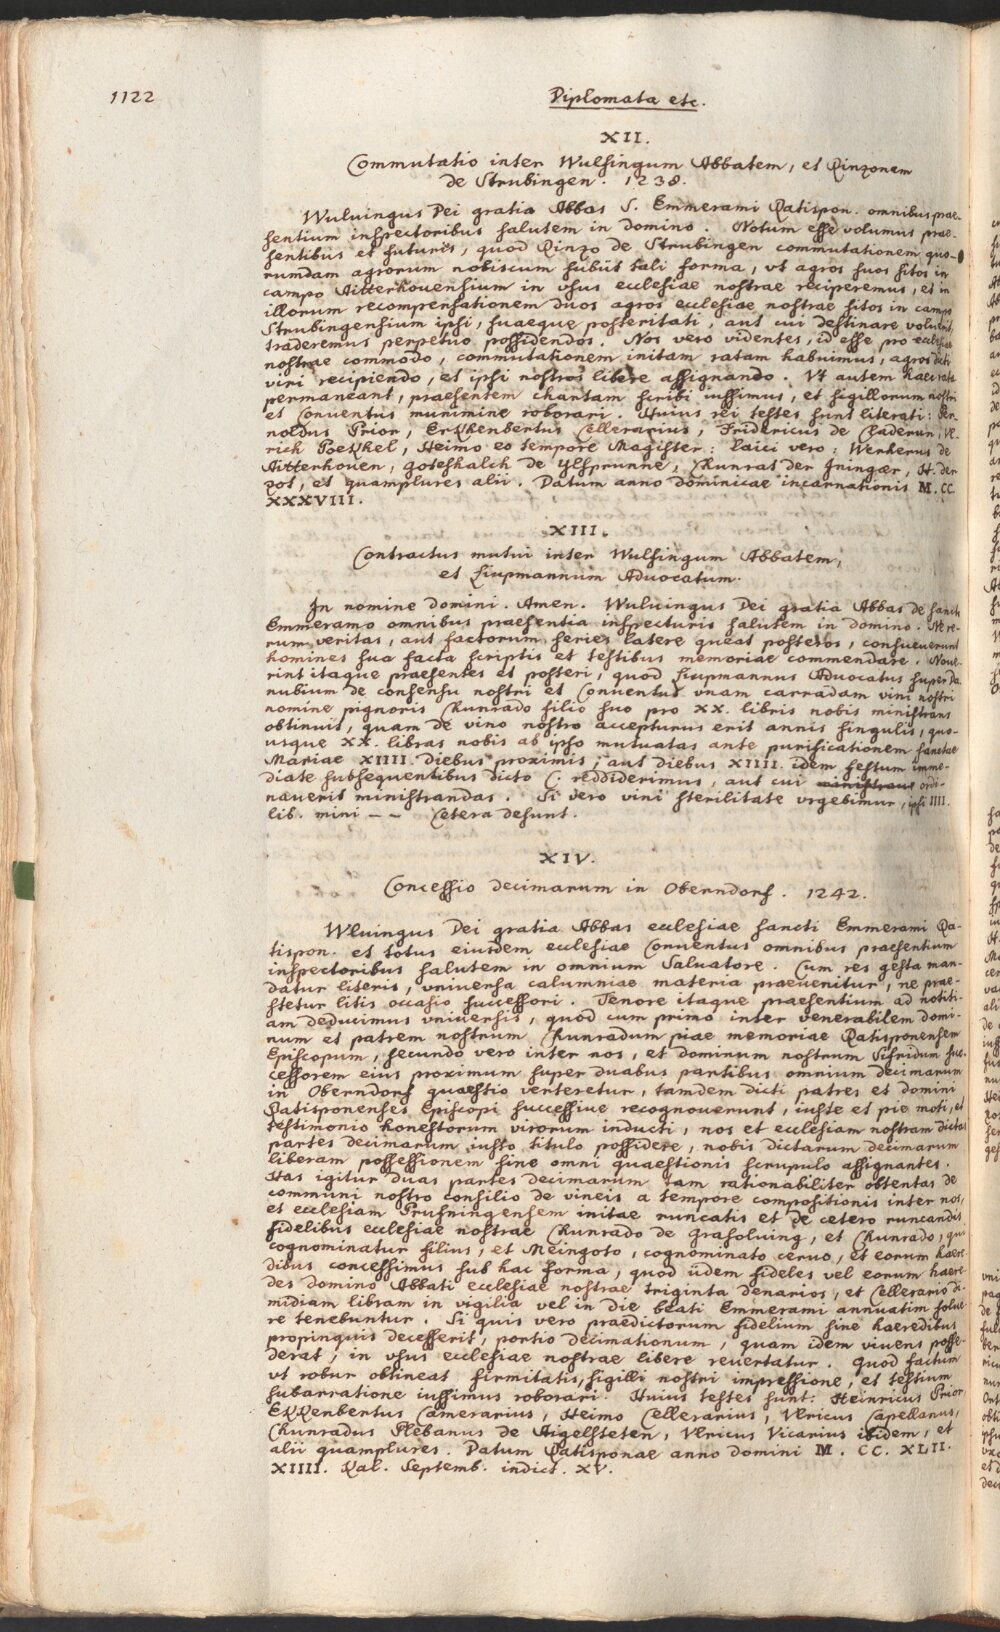 1122
Diplomata etc.
XII.
Commutatio inter Wulfingum Abbatem, et Rinzonem
de Strubingen. 1238.
Wuluingus Dei gratia Abbas S. Emmerami Ratispon. omnibus prae-
sentium inspectoribus salutem in domino. Notum esse volumus prae-
sentibus et futuris, quod Rinzo de Strubingen commutationem quo-
rumdam agrorum nobiscum subiit tali forma, vt agros suos sitos in
campo Aitterhouensium in vsus ecclesiae nostrae reciperemus, et in
illorum recompensationem duos agros ecclesiae nostrae sitos in campo
Strubingensium ipsi, suaeque posteritati, aut cui destinare voluerit,
traderemus perpetuo possidendos. Nos vero videntes, id esse pro ecclesiae
nostrae commodo, commutationem initam ratam habuimus, agros dicti
viri recipiendo, et ipsi nostros libere assignando. Vt autem haec rata
permaneant, praesentem chartam scribi iussimus, et sigillorum nostri
et Conuentus munimine roborari. Huius rei testes sunt literati: Per-
noldus Prior, Erkhenbertus Cellerarius, Fridericus de Chaderun, Vl-
rich Poekhel, Heimo eo tempore Magister: Laici vero: Werherus de
Aitterhouen, Goteshalch de Ylsprunne, Chunrat der Ininger, H. der
zot, et quamplures alii. Datum anno dominicae incarnationis M. CC.
XXXVIII.
XIII.
Contractus mutui inter Wulfingum Abbatem,
et Liupmannum Aduocatum.
In nomine domini. Amen. Wuluingus Dei gratia Abbas de sancto
Emmeramo omnibus praesentia inspecturis salutem in domino. Ne re-
rum veritas, aut factorum series latere queat posteros, consueuerunt
homines sua facta scriptis et testibus memoriae commendare. Noue-
rint itaque praesentes et posteri, quod Liupmannus Aduocatus super Da-
nubium de consensu nostri et Conuentus vnam carradam vini nostri
nomine pignoris Chunrado filio suo pro XX. libris nobis ministrans
obtinuit, quam de vino nostro accepturus erit annis singulis, quo-
usque XX. libras nobis ab ipso mutuatas ante purificationem sanctae
Mariae XIIII. diebus proximis, aut diebus XIIII. idem festum imme-
diate subsequentibus dicto C: reddiderimus, aut cui ministraue ordi-
nauerit ministrandas. Si vero vini sterilitate vrgebimur, ipsi IIII.
lib. mini – – Cetera desunt.
XIV.
Concessio decimarum in Oberndorf. 1242.
Wluingus Dei gratia Abbas ecclesiae sancti Emmerami Ra-
tispon. et totus eiusdem ecclesiae Conuentus omnibus praesentium
inspectoribus salutem in omnium Saluatore. Cum res gesta man-
datur literis, vniuersa calumniae materia praeuenitur, ne prae-
stetur litis occasio successori. Tenore itaque praesentium ad notiti-
am deducimus vniuersis, quod cum primo inter venerabilem domi-
num et patrem nostrum Chunradum piae memoriae Ratisponensem
Episcopum, secundo vero inter nos, et dominum nostrum Sifridum suc-
cessorem eius proximum super duabus partibus omnium decimarum
in Oberndorf quaestio verteretur, tamdem dicti patres et domini
Ratisponenses Episcopi successiue recognouerunt, iuste et pie moti, et
testimonio honestorum virorum inducti, nos et ecclesiam nostram dictas
partes decimarum iusto titulo possidere, nobis dictarum decimarum
liberam possessionem sine omni quaestionis scrupulo assignantes.
Has igitur duas partes decimarum tam rationabiliter obtentas de
communi nostro consilio de vineis a tempore compositionis inter nos,
et ecclesiam Prufningensem initae runcatis et de cetero runcandis
fidelibus ecclesiae nostrae Chunrado de Grasoluing, et Chunrado, qui
cognominatur filius, et Meingoto, cognominato ceruo, et eorum haere-
dibus concessimus sub hac forma, quod iidem fideles vel eorum haere-
des domino Abbati ecclesiae nostrae triginta denarios, et Cellerario di-
midiam libram in vigilia vel in die beati Emmerami annuatim solue-
re tenebuntur. Si quis vero praedictorum fidelium sine haereditus
propinquis decesserit, portio decimationum, quam idem viuens posse-
derat, in vsus ecclesiae nostrae libere reuertatur. Quod factum
vt robur obtineat firmitatis, sigilli nostri impressione, et testium
subarratione iussimus roborari. Huius testes sunt: Heinricus Prior,
Ekkenbertus Camerarius, Heimo Cellerarius, Vlricus Capellanus,
Chunradus Plebanus de Aigelsteten, Vlricus Vicarius ibidem, et
alii quamplures. Datum Ratisponae anno domini M. CC. XLII.
XIIII. Kal. Septemb. indict. XV.